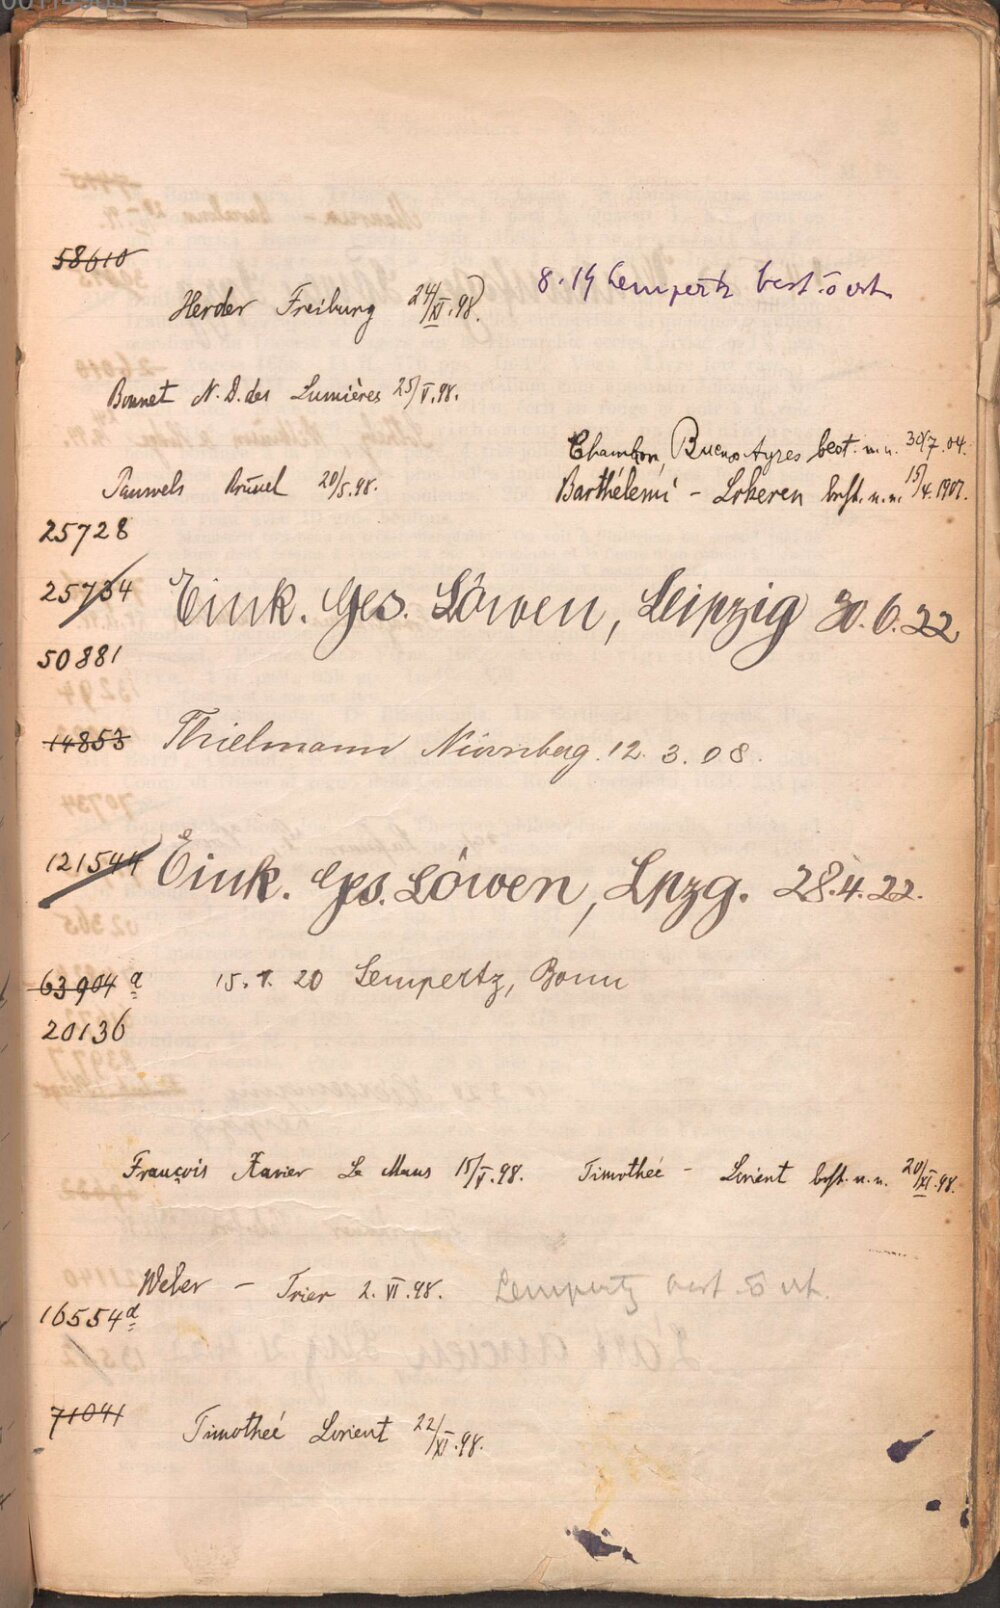 58610
Herder Freiburg 24/XI.98.
8.14 Lempertz best. o vrt.
Bonnet N.D. des Lumières 25/V.98.
Chambon, Buenos Ayres best. n.n. 30/7.04.
Pauwels Brüssel 20/5.98.
Barthélemi - Lokeren best. n.n. 15/4.1907.
25728
25734 Eink. Ges. Löwen, Leipzig 30.6.22
50881
14853 Thielmann Nürnberg. 12.3.08.
121544 Eink. Ges. Löwen, Lpzg. 28.4.22.
63904 a 15.1.20 Lempertz, Bonn
20136
François Xavier Le Mans 15/V.98. Timotheé - Lorient best. n.n. 20/XI.98.
Weber - Trier 2.VI.98. Lempertz
16554 a
71041
Timotheé Lorient 22/XI.98.